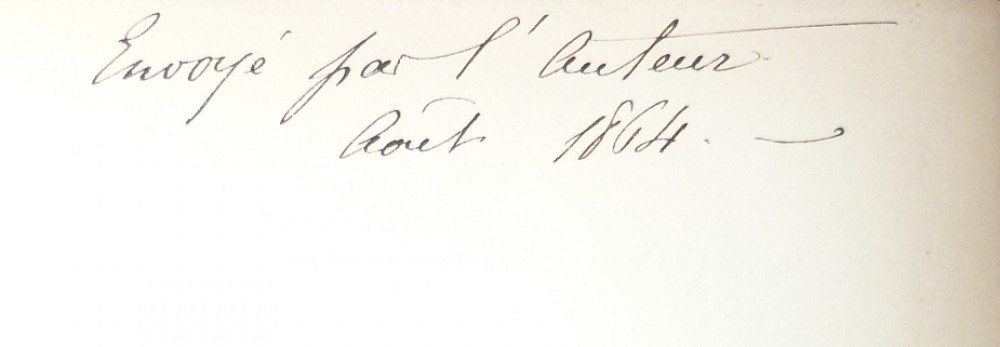 Envoyé par l'Auteur
Août 1864. —